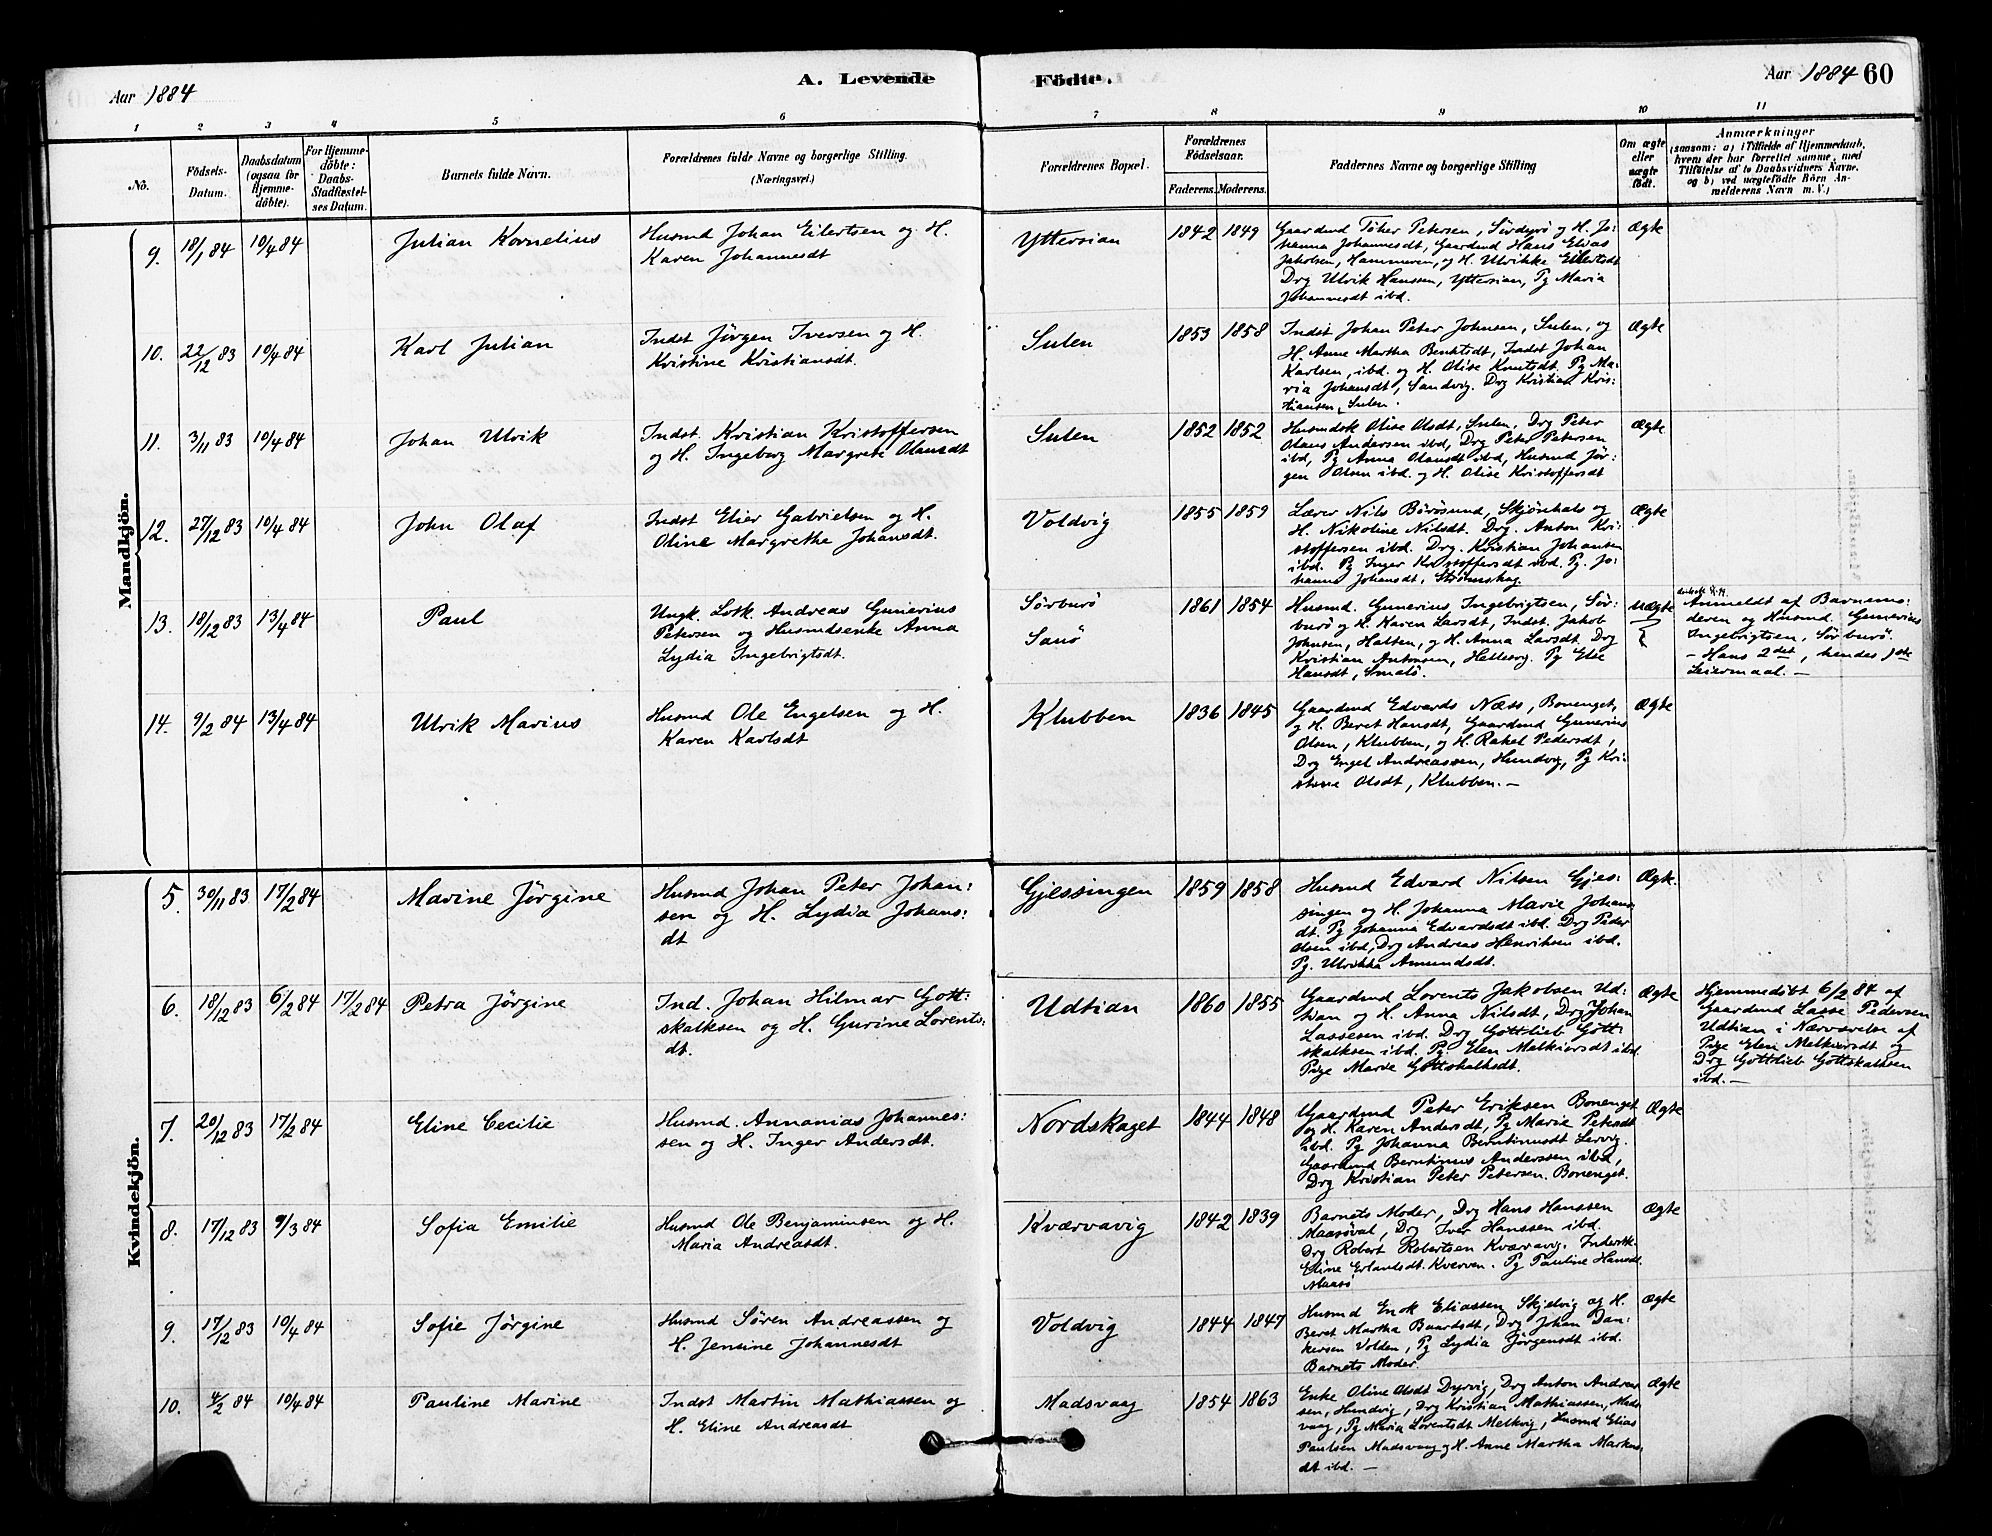 Aar 1884
A. Levende
Födte.
Aar 1884 60
1 2 3 4 5 6 7 8 9 10 11
No.
Födsels-Datum.
Daabsdatum (ogsaa for Hjemme-döbte).
For Hjemme-döbte: Daabs-Stadfæstel-ses Datum.
Barnets fulde Navn.
Forældrenes fulde Navne og borgerlige Stilling.
(Næringsvei.)
Forældrenes Bopæl.
Forældrenes Födselsaar.
Faderens. Moderens.
Faddernes Navne og borgerlige Stilling
Om ægte eller uægte født.
Anmærkninger
(saasom: a) i Tilfælde af Hjemmedaab,
hvem der har forrettet samme, med
Tilföielse af to Daabsvidners Navne,
og b) ved uægtefödte Börn An-
melderens Navn m. V.)
Mandkjön.
9. 18/1 84 10/4 84 Julian Kornelius
Husmd Johan Eilertsen og H.
Karen Johannesdt
Yttersian 1842 1849
Gaardmd Töher Petersen, Sördyrö og H. Jo-
hanna Johannesdt, Gaardmd Hans Elias
Jakobsen, Hammeren, og H. Ulrikke Eilertsdt
Drg Ulrik Hanssen, Yttersian, Pg Maria
Johannesdt ibd.
Ægte
10. 22/12 83 10/4 84 Karl Julian
Indst Jörgen Iversen og H.
Kristine Kristiansdt.
Sulen 1853 1858
Indst Johan Peter Johnsen, Sulen, og
H. Anne Martha Benktsdt, Indst Johan
Karlsen, ibd. og H. Olise Knutsdt. Pg Ma-
ria Johansdt, Sandvig. Drg Kristian Kris-
tiansen, Sulen.
Ægte
11. 3/11 83 10/4 84 Johan Ulrik
Indst. Kristian Kristoffersen
og H. Ingeborg Margrete Olausdt
Sulen 1852 1852
Husmdsk Olise Olsdt, Sulen, Drg Peter
Olaus Andersen ibd, Drg Peter Petersen
ibd, Pg Anna Olausdt ibd, Husmd Jör-
gen Olsen ibd. og H. Olise Kristoffersdt
Ægte
12. 27/12 83 10/4 84 John Olaf
Indst Elier Gabrielsen og H.
Oline Margrethe Johansdt.
Voldvig 1855 1859
Lærer Nils Börösund, Skjönhals og
H. Nikoline Nilsdt. Drg. Anton Kri-
stoffersen ibd. Drg. Kristian Johansen
ibd. Pg Inger Kristoffersdt ibd. Pg. Jo-
hanna Johansdt, Strömskag.
Ægte
13. 18/12 83 13/4 84 Paul
Ungk. Losk. Andreas Gunerius
Petersen og Husmdsenke Anna
Lydia Ingebrigtsdt.
Sörburö
Sanö
1861 1854
Husmd. Gunerius Ingebrigtsen, Sör-
burö og H. Karen Larsdt, Indst. Jakob
Johnsen, Halten, og H. Anna Larsdt. Drg
Kristian Antonsen, Hellesvg. Pg Elie
Hansdt, Smalö.
Uægte
Anmeldt af Barnemo-
deren og Husmd. Gunerius
Ingebrigtsen, Sörburö.
– Hans 2det, hendes 1ste
Leiermaal. –
14. 9/2 84 13/4 84 Ulrik Marius
Husmd Ole Engelsen og H.
Karen Karlsdt
Klubben 1836 1845
Gaardmd Edvards Næss, Bonenget,
og H. Beret Hansdt, Gaardmd Gunerius
Olsen, Klubben, og H. Rakel Pedersdt,
Drg Engel Andreassen, Hundvig, Pg Kri-
stine Olsdt, Klubben. –
Ægte
Kvindekjön.
5. 30/11 83 17/2 84 Marine Jörgine
Husmd Johan Peter Johan-
sen og H. Lydia Johans-
dt
Gjessingen 1859 1858
Husmd Edvard Nilsen Gjes-
singen og H. Johanna Marie Johans-
dt. Pg Johanna Edvardsdt ibd. Drg Peder
Olsen ibd, Drg Andreas Henriksen ibd.
Pg. Ulrikka Amundsdt.
Ægte.
6. 18/12 83 6/2 84 17/2 84 Petra Jörgine
Ind. Johan Hilmar Gott-
skalksen og H. Gurine Lorents-
dt.
Udtian 1860 1855
Gaardmd Lorents Jakobsen Ud-
tian og H. Anna Nilsdt, Drg Johan
Lassesen ibd. Drg Gottlieb Gott-
skalksen ibd. Pg. Elen Melkiorsdt ibd.
Pige Marie Gottskalksdt.
Ægte
Hjemmedöbt 6/2 84 af
Gaardmd Lasse Pedersen
Udtian i Nærværelse af
Pige Elen Melkiorsdt og
Drg Gottlieb Gottskalksen
ibd. –
7. 20/12 83 17/2 84 Eline Cecilie
Husmd. Annanias Johannes-
sen og H. Inger Andersdt.
Nordskaget 1844 1848
Gaardmd Peter Eriksen Bonenget
og H. Karen Andersdt, Pg Marie Petersdt
ibd. Pg Johanna Berntinusdt Lervig.
Gaardmd Berntinus Anderssen ibd,
Drg Kristian Peter Petersen. Bonenget.
Ægte
8. 17/12 83 9/3 84 Sofia Emilie
Husmd Ole Benjaminsen og H.
Maria Andreasdt.
Kværvavig 1842 1839
Barnets Moder, Drg Hans Hanssen
Maasöval, Drg Iver Hanssen ibd.
Drg Robert Robertsen Kværvavig. Inderstk
Eline Erlandsdt. Kverven. Pg Pauline Hansdt.
Maasö
Ægte
9. 17/12 83 10/4 84 Sofie Jörgine
Husmd Sören Andreassen og
H. Jensine Johannesdt
Voldvig 1844 1847
Husmd Enok Eliassen Skjelvig og H.
Beret Martha Baardsdt, Drg Johan Dan-
kersen Volden, Pg Lydia Jörgensdt ibd.
Barnets Moder.
Ægte
10. 4/2 84 10/4 84 Pauline Marine
Indst Martin Mathiassen og
H. Eline Andreasdt
Madsvaag 1854 1863
Enke Oline Olsdt Dyrvig, Drg Anton Andreas-
sen, Hundvig, Drg Kristian Mathiassen, Mads-
vaag, Pg Maria Lorentsdt Melkvig, Husmd Elias
Paulsen Madsvaag og H. Anne Martha Markus-
dt ibd. –
Ægte